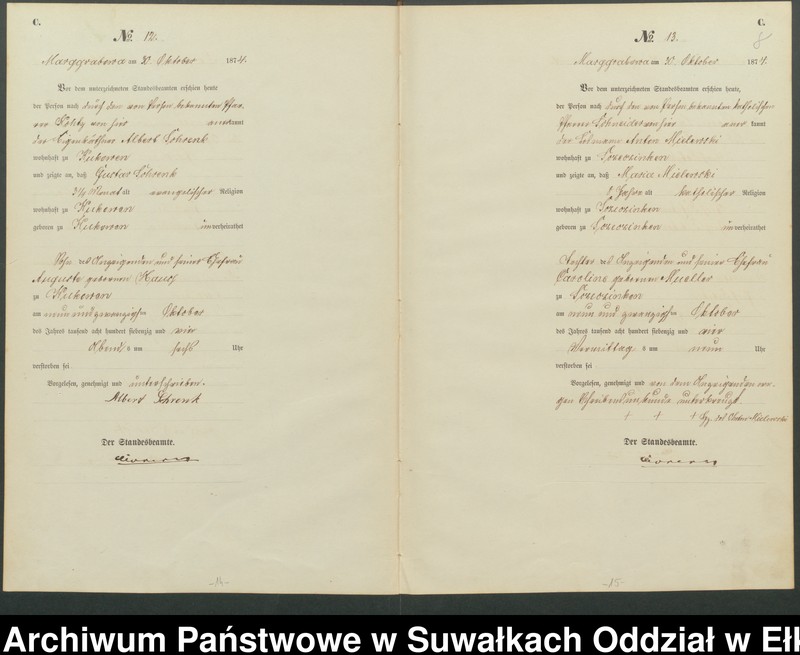 C.
No 12.
Marggrabowa am 30 Oktober 1874.
Vor dem unterzeichneten Standesbeamten erschien heute
der Person nach durch den von Person bekannten Pfar
rer von hier anerkannt
der Eigenkäthner Albert Schrenk
wohnhaft zu Kukowen
und zeigte an, daß Gustav Schrenk
alt evangelischer Religion
wohnhaft zu Kukowen
geboren zu Kukowen unverheirathet
Sohn des Anzeigenden und seiner Ehefrau
Auguste geborenen
zu Kukowen
am neun und zwanzigsten Oktober
des Jahres tausend acht hundert siebenzig und vier
Abends um sechs Uhr
verstorben sei
Vorgelesen, genehmigt und unterschrieben.
Albert Schrenk
Der Standesbeamte.
-14-
C.
8
No 13.
Marggrabowa am 30 Oktober 1874.
Vor dem unterzeichneten Standesbeamten erschien heute,
der Person nach durch den von Person bekannten katholischen
Pfarrer Schneider von hier anerkannt
der Losmann Anton Mielewski
wohnhaft zu
und zeigte an, daß Marie Mielewski
Jahre alt katholischer Religion
wohnhaft zu
geboren zu unverheirathet
Tochter des Anzeigenden und seiner Ehefrau
Caroline geborenen Mueller
zu
am neun und zwanzigsten Oktober
des Jahres tausend acht hundert siebenzig und vier
Vormittag um neun Uhr
verstorben sei
Vorgelesen, genehmigt und von dem Anzeigenden we
gen Schreibensunkunde unterkreuzt
+ + + Hz. des Anton Mielewski
Der Standesbeamte.
-15-
Archiwum Państwowe w Suwałkach Oddział w Ełk